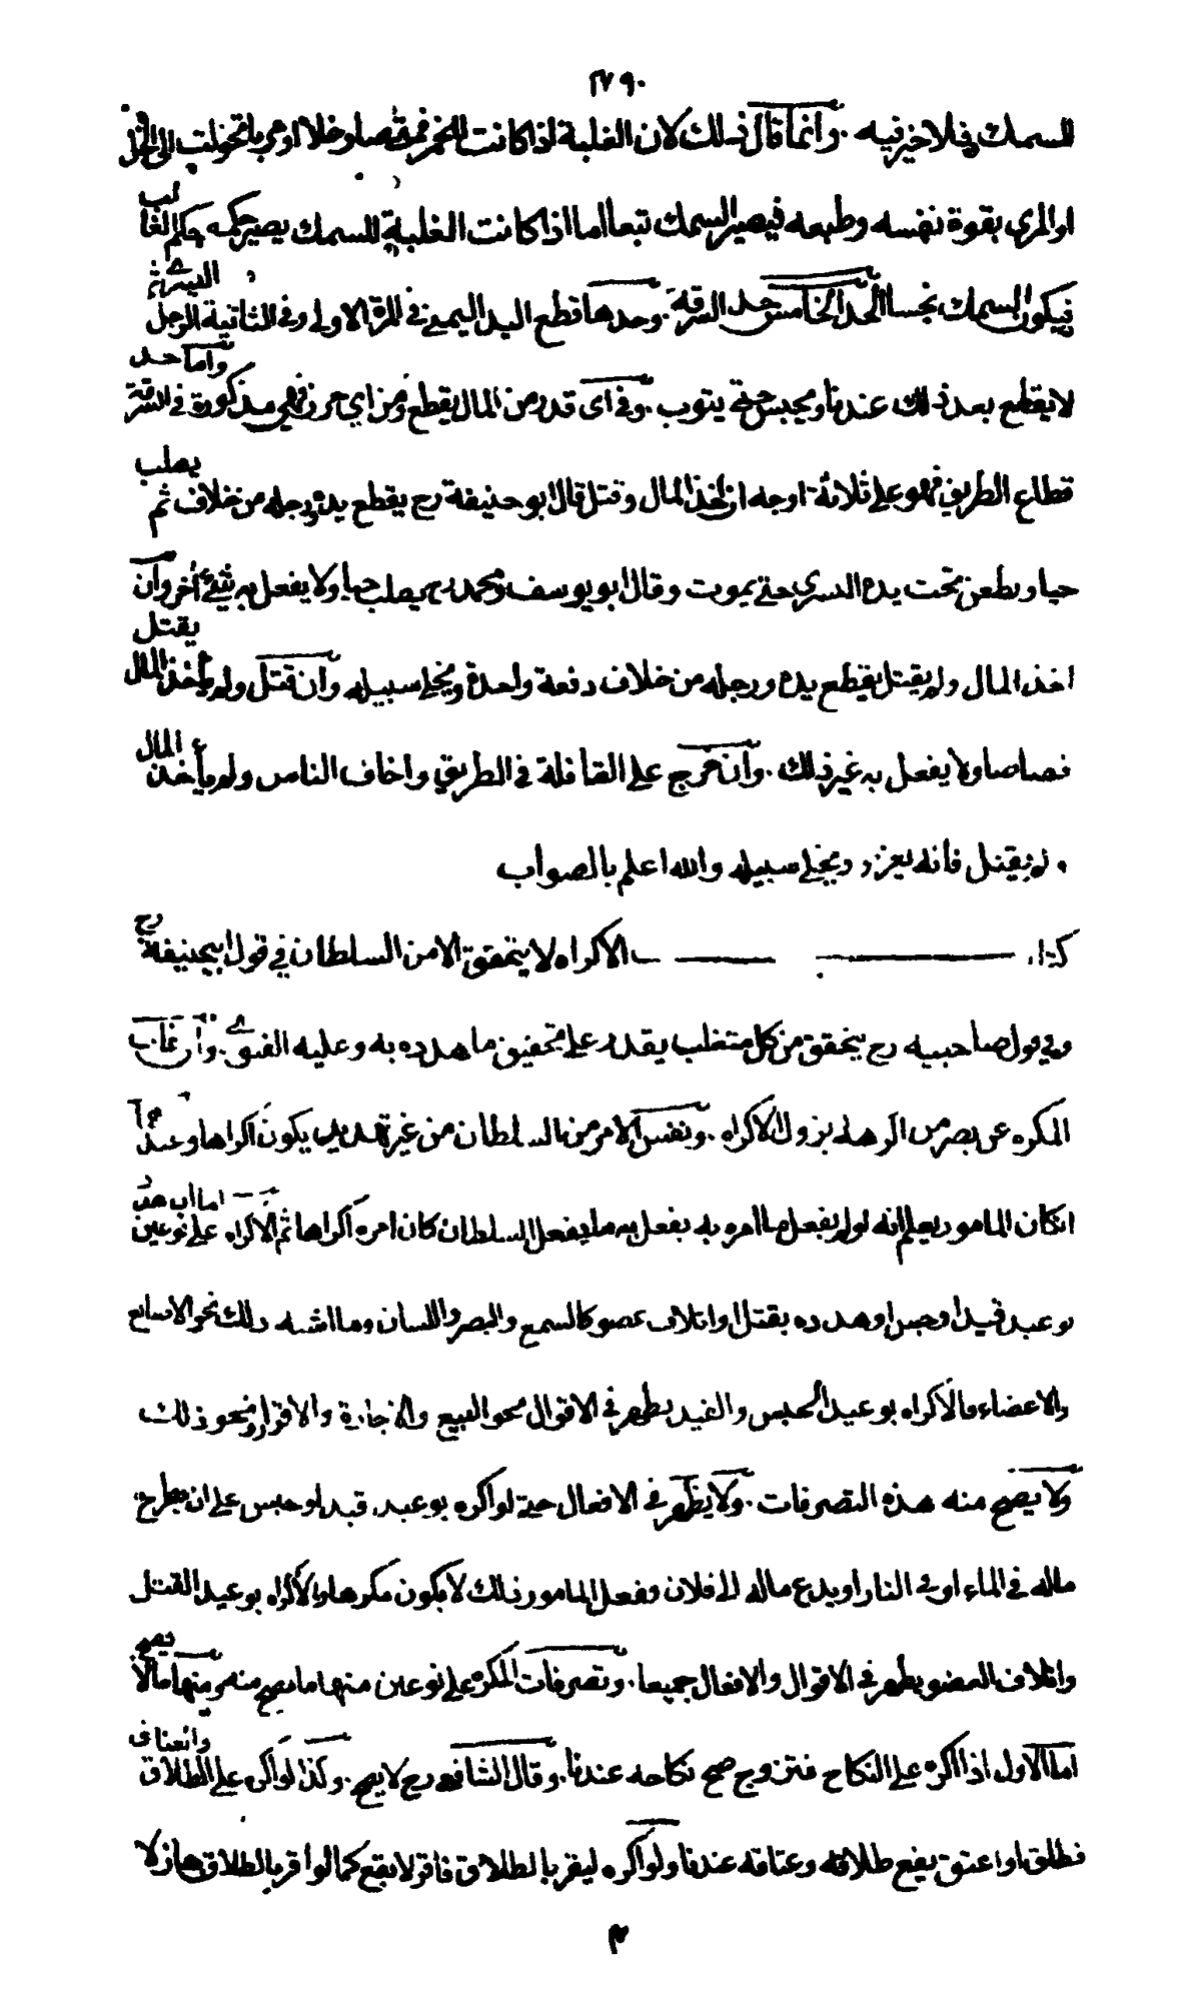 ٢٧٩٠
للسمك فلا خير فيه . وانما قال ذلك لان الغلبة اذا كانت للخمر صار خلا او مريا تحولت الى الخل
او المري بقوة نفسه وطبعه فيصير السمك تبعا اما اذا كانت الغلبة للسمك يصير حكمه حكم الغالب
فيكون السمك نجسا الحد الخامس حد السرقة . وحدها قطع اليد اليمنى في المرة الاولى وفي الثانية الرجل اليسرى ثم
لا يقطع بعد ذلك عندنا ويحبس حتى يتوب . وفي اى قدر من المال يقطع ومن اي حرز فهي مذكورة في السرقة واما حد
قطاع الطريق فهو على ثلاثة اوجه ان اخذ المال وقتل قال ابو حنيفة رح يقطع يده ورجله من خلاف ثم يصلب
حيا ويطعن تحت يده اليسرى حتى يموت وقال ابو يوسف ومحمد رح يصلب حيا ولا يفعل به شيء آخر وان
اخذ المال ولم يقتل يقطع يده ورجله من خلاف دفعة واحدة ويخلى سبيله وان قتل ولم يأخذ المال يقتل
قصاصا ولا يفعل به غير ذلك . وان خرج على القافلة في الطريق واخاف الناس ولم يأخذ المال
ولم يقتل فانه يعزر ويخلى سبيله والله اعلم بالصواب
كتاب الاكراه لا يتحقق الا من السلطان في قول ابي حنيفة رح
وفي قول صاحبيه رح يتحقق من كل متغلب يقدر على تحقيق ما هدده به وعليه الفتوى . وان غاب
المكره عن بصر من اكرهه يزول الاكراه . ونفس الامر من السلطان من غير تهديد يكون اكراها وعندهما
ان كان المامور يعلم انه لو لم يفعل ما امره به يفعل به ما يفعل السلطان كان امره اكراها ثم الاكراه على نوعين اما ان هدده
بوعيد قيد او حبس او هدده بقتل او اتلاف عضو كالسمع والبصر واللسان وما اشبه ذلك نحو الاصابع
والاعضاء فالاكراه بوعيد الحبس والقيد يظهر في الاقوال نحو البيع والاجارة والاقرار ونحو ذلك
ولا يصح منه هذه التصرفات . ولا يظهر في الافعال حتى لو اكره بوعيد قيد او حبس على ان يطرح
ماله في الماء او في النار او يدع ماله الى فلان وفعل المامور ذلك لا يكون مكرها والاكراه بوعيد القتل
واتلاف العضو يظهر في الاقوال والافعال جميعا . وتصرفات المكره على نوعين منها ما يصح منه ومنها ما لا يصح
اما الاول اذا اكره على النكاح فتزوج صح نكاحه عندنا . وقال الشافعي رح لا يصح . وكذا لو اكره على الطلاق والعتاق
فطلق او اعتق يقع طلاقه وعتاقه عندنا ولو اكره ليقر بالطلاق فاقر لا يقع كما لو اقر بالطلاق هازلا